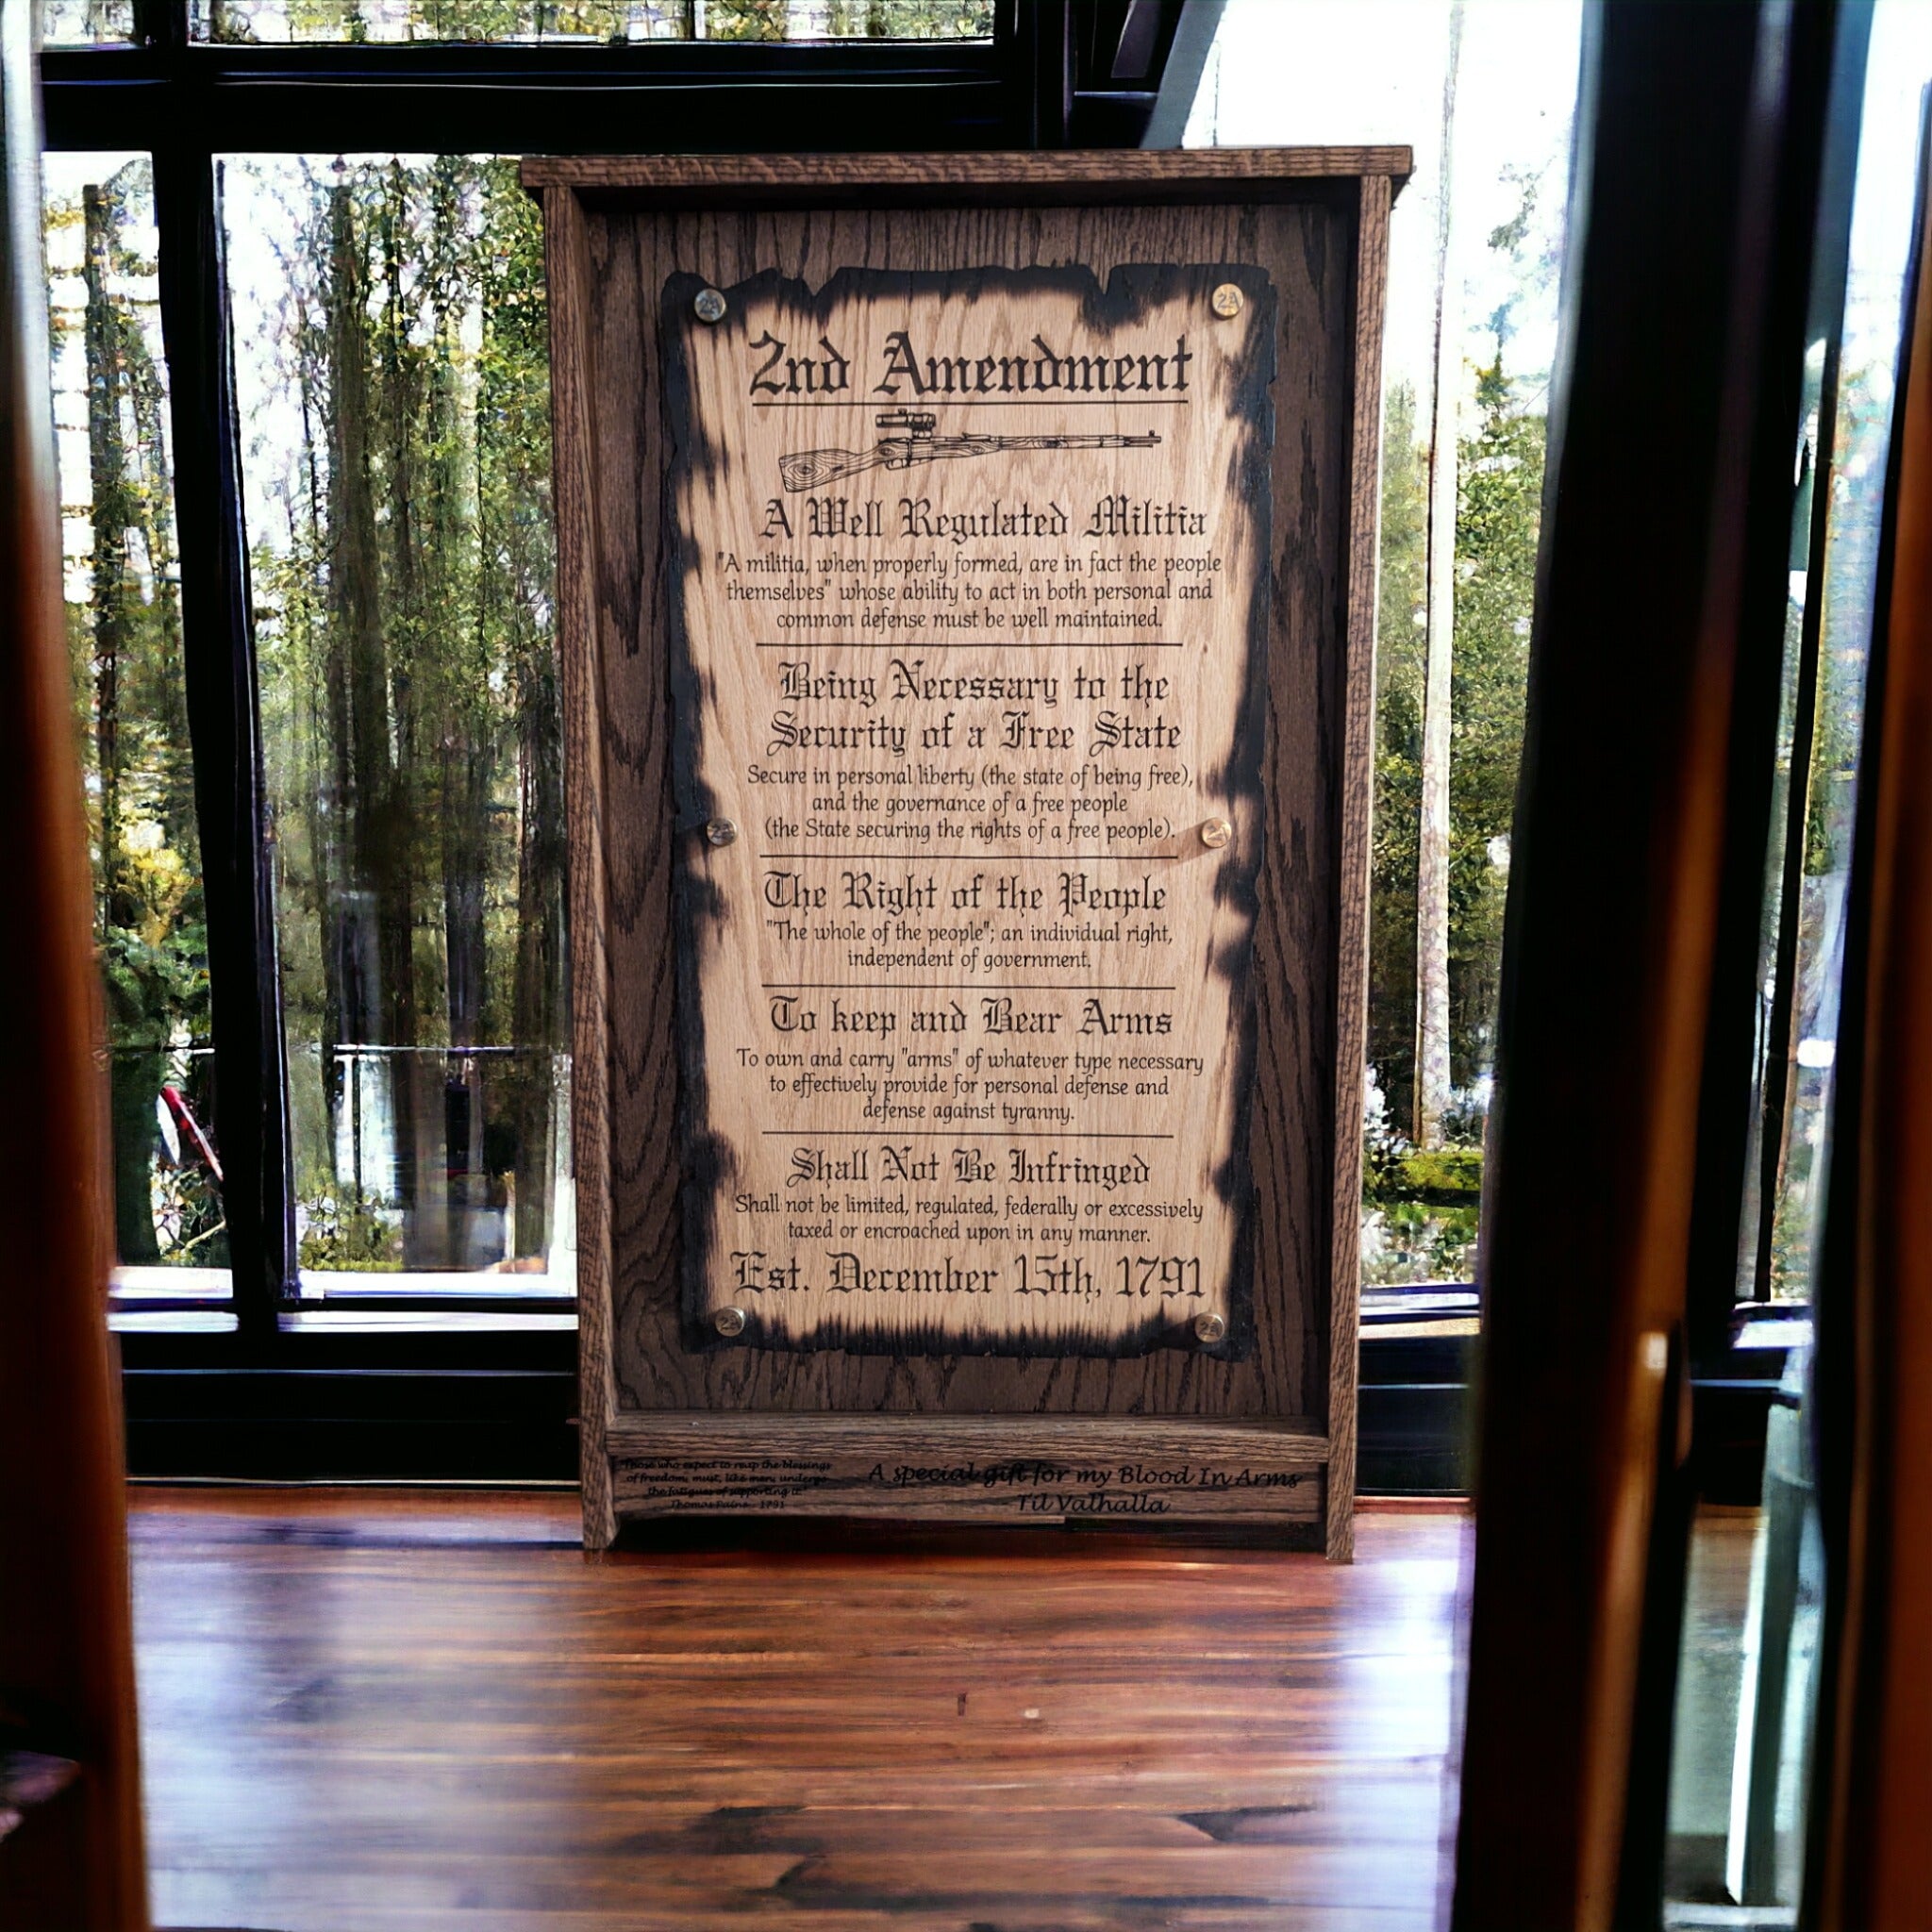 2A 2A
2nd Amendment
A Well Regulated Militia
"A militia, when properly formed, are in fact the people
themselves" whose ability to act in both personal and
common defense must be well maintained.
Being Necessary to the
Security of a Free State
Secure in personal liberty (the state of being free),
and the governance of a free people
(the State securing the rights of a free people).
2A 2A
The Right of the People
"The whole of the people"; an individual right,
independent of government.
To keep and Bear Arms
To own and carry "arms" of whatever type necessary
to effectively provide for personal defense and
defense against tyranny.
Shall Not Be Infringed
Shall not be limited, regulated, federally or excessively
taxed or encroached upon in any manner.
Est. December 15th, 1791
2A 2A
"Those who expect to reap the blessings
of freedom, must, like men, undergo
the fatigues of supporting it."
Thomas Paine, 1791
A special gift for my Blood In Arms
Til Valhalla